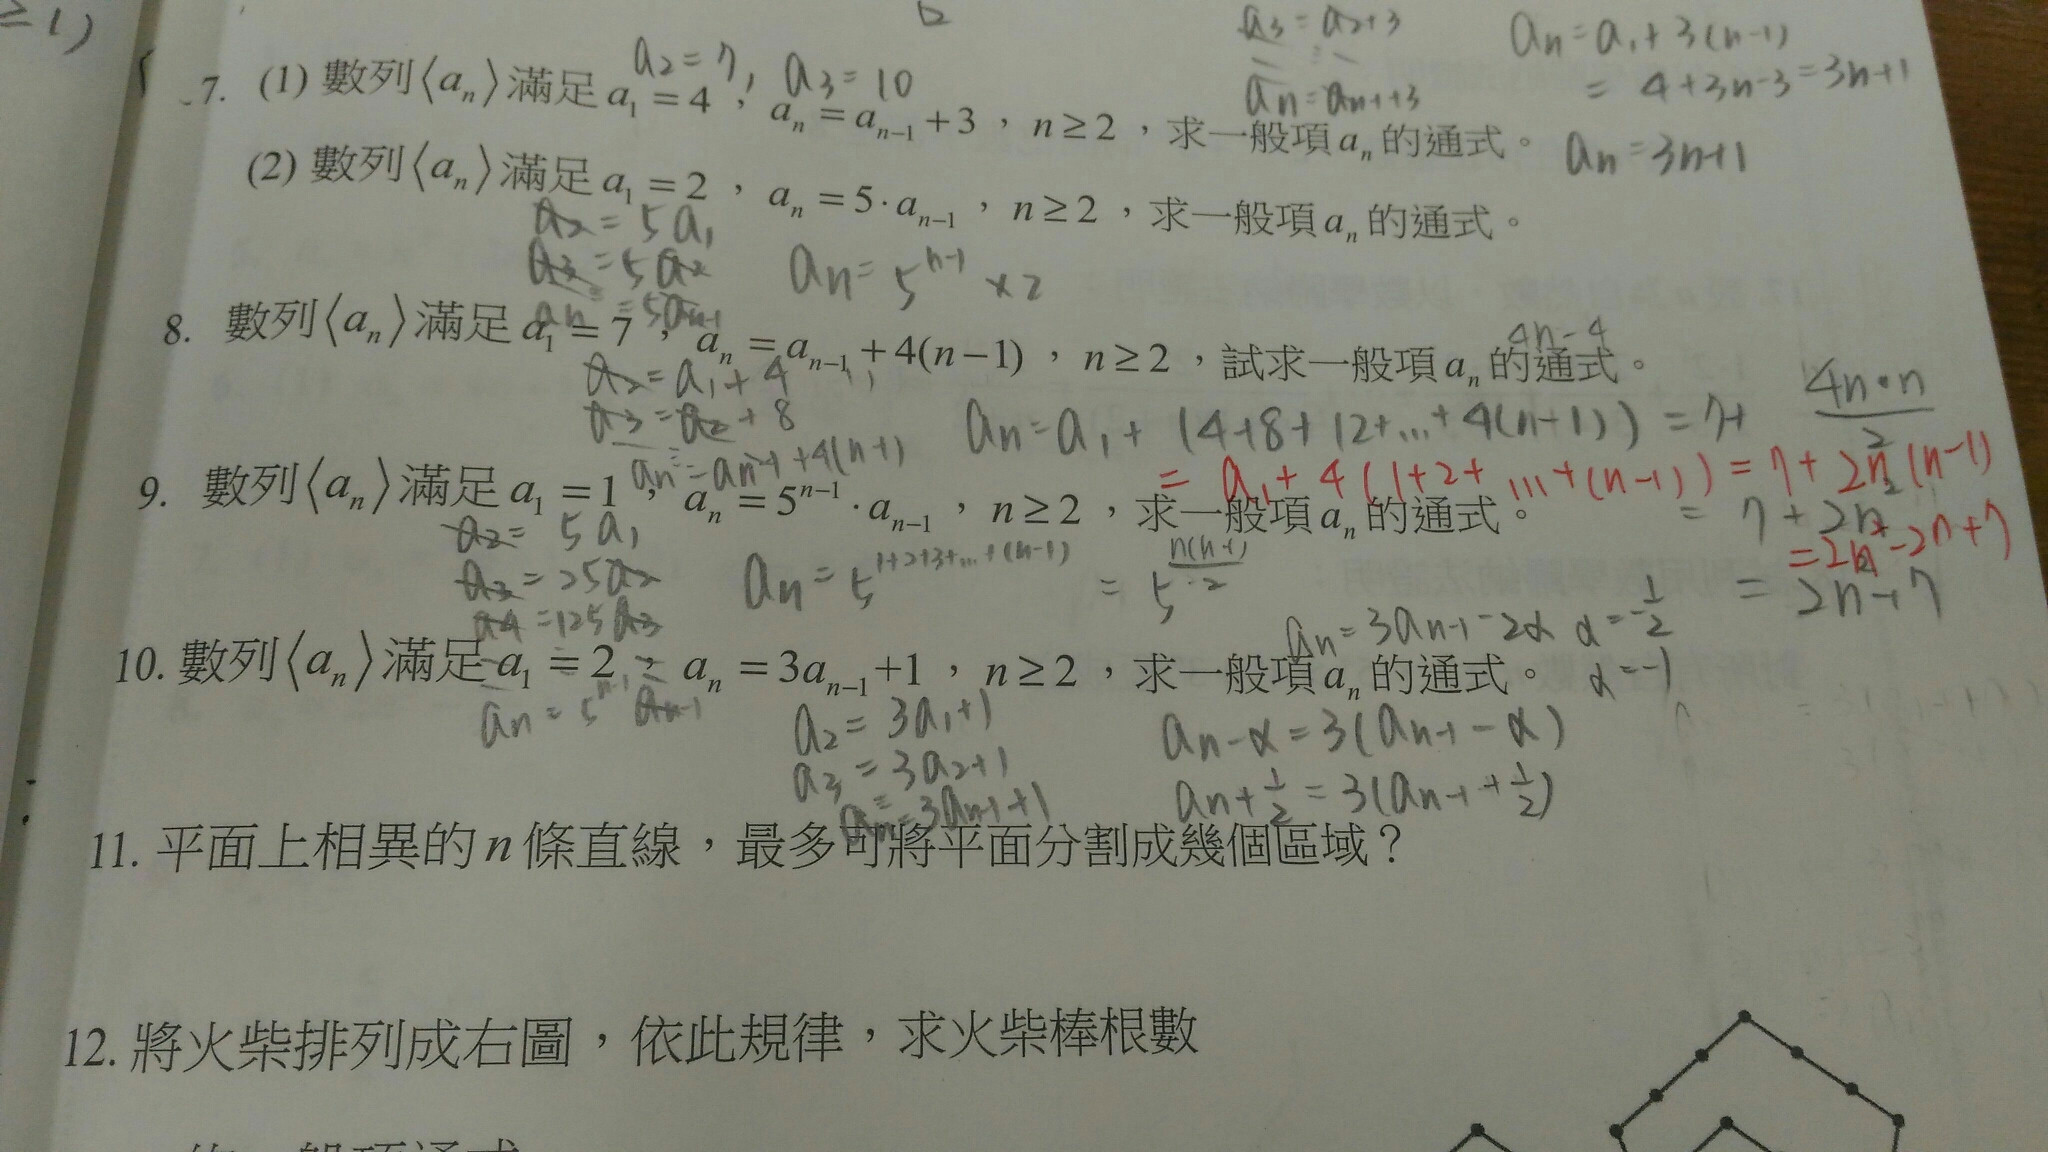 ≥1)
a₃=a₂+3
aₙ=a₁+3(n-1)
a₂=7, a₃=10
=4+3n-3=3n+1
aₙ=aₙ₋₁+3
7. (1) 數列⟨aₙ⟩滿足a₁=4，aₙ=aₙ₋₁+3，n≥2，求一般項aₙ的通式。
aₙ=3n+1
(2) 數列⟨aₙ⟩滿足a₁=2，aₙ=5·aₙ₋₁，n≥2，求一般項aₙ的通式。
a₂=5a₁
a₃=5a₂
aₙ=5ⁿ⁻¹×2
aₙ=5aₙ₋₁
4n-4
8. 數列⟨aₙ⟩滿足a₁=7，aₙ=aₙ₋₁+4(n-1)，n≥2，試求一般項aₙ的通式。
a₂=a₁+4
a₃=a₂+8
aₙ=a₁+(4+8+12+...+4(n-1))=7+ 4n·n/2
aₙ=aₙ₋₁+4(n-1)
=a₁+4(1+2+...+(n-1))=7+2n(n-1)
9. 數列⟨aₙ⟩滿足a₁=1，aₙ=5ⁿ⁻¹·aₙ₋₁，n≥2，求一般項aₙ的通式。
=7+2n²
=2n²-2n+7
=2n²+7
a₂=5a₁
a₃=25a₂
a₄=125a₃
aₙ=5^(1+2+3+...+(n-1)) =5^(n(n-1)/2)
aₙ=3aₙ₋₁-2α α=-1/2
10. 數列⟨aₙ⟩滿足a₁=2，aₙ=3aₙ₋₁+1，n≥2，求一般項aₙ的通式。
α=-1
aₙ=5ⁿ⁻¹aₙ₋₁
a₂=3a₁+1
aₙ-α=3(aₙ₋₁-α)
a₃=3a₂+1
aₙ+1/2=3(aₙ₋₁+1/2)
aₙ=3aₙ₋₁+1
11. 平面上相異的n條直線，最多可將平面分割成幾個區域？
12. 將火柴排列成右圖，依此規律，求火柴棒根數